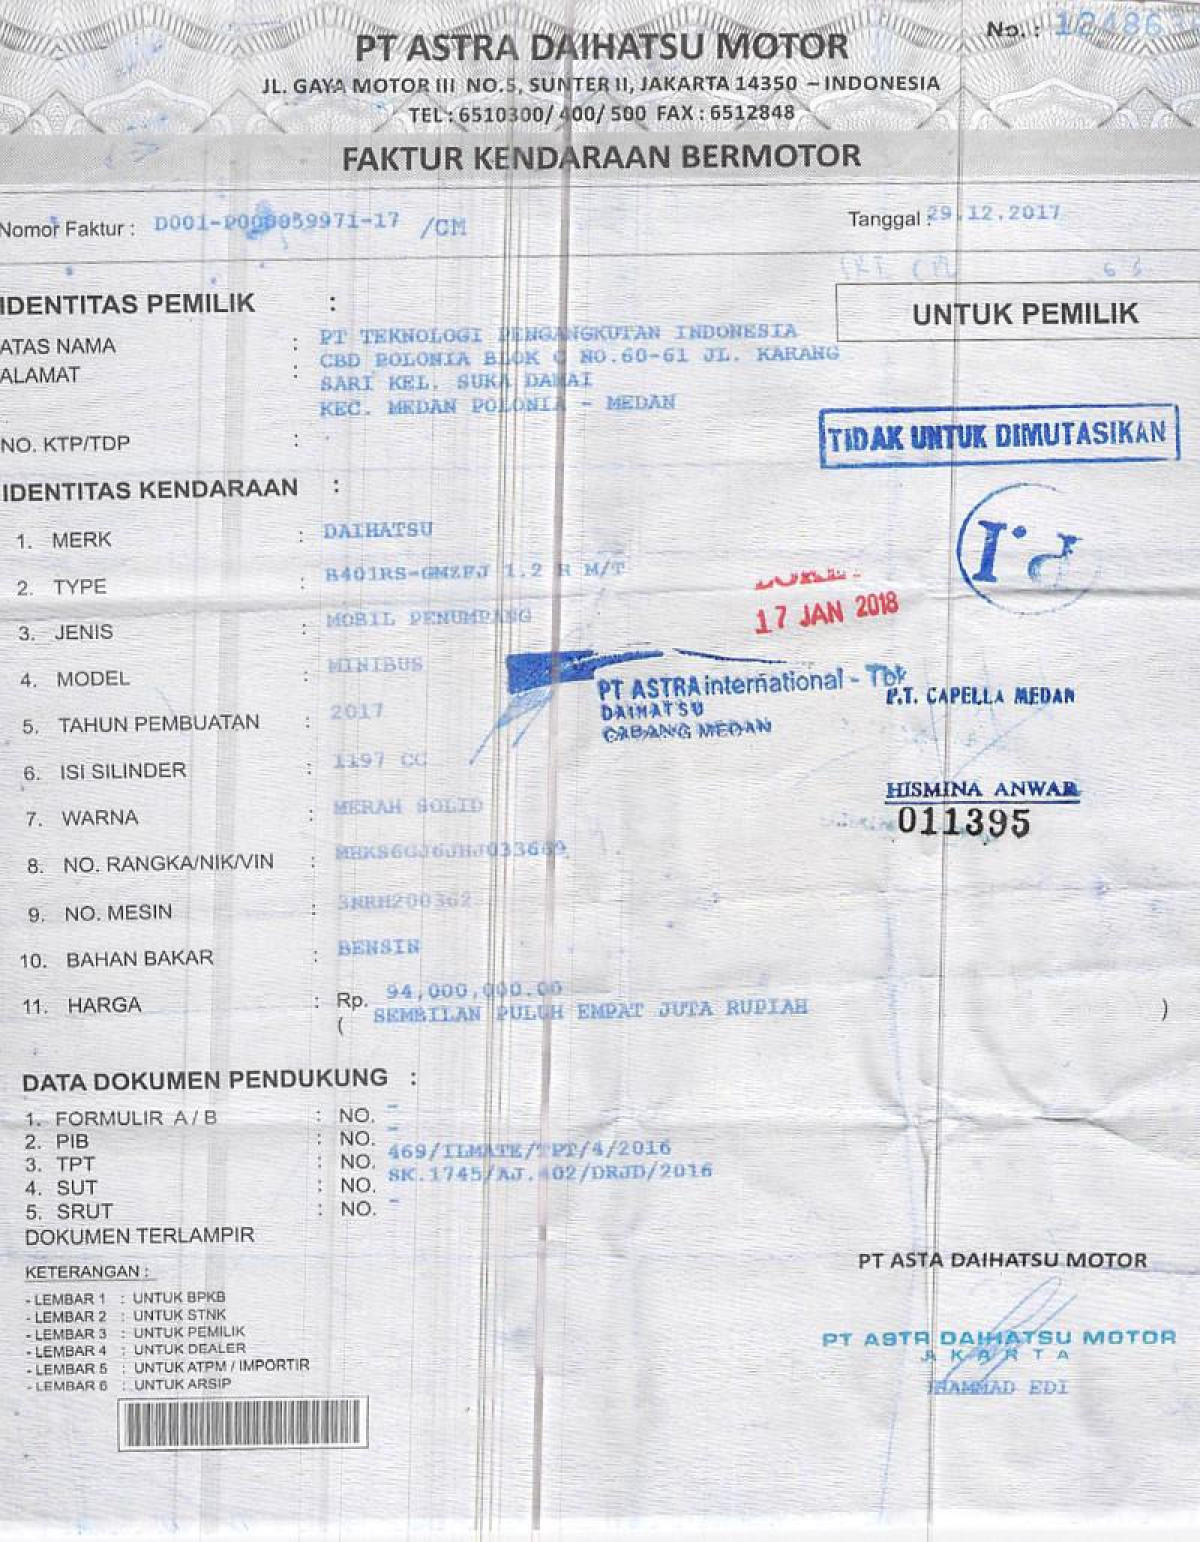 No. :
PT ASTRA DAIHATSU MOTOR
JL. GAYA MOTOR III NO.5, SUNTER II, JAKARTA 14350 – INDONESIA
TEL : 6510300/ 400/ 500 FAX : 6512848
FAKTUR KENDARAAN BERMOTOR
Nomor Faktur : D001-P000059971-17 /CM
Tanggal : 29.12.2017
IDENTITAS PEMILIK :
UNTUK PEMILIK
ATAS NAMA : PT TEKNOLOGI PENGANGKUTAN INDONESIA
ALAMAT : CBD POLONIA BLOK C NO.60-61 JL. KARANG
SARI KEL. SUKA DAMAI
KEC. MEDAN POLONIA - MEDAN
TIDAK UNTUK DIMUTASIKAN
NO. KTP/TDP :
IDENTITAS KENDARAAN :
1. MERK : DAIHATSU
2. TYPE : B401RS-GMZFJ 1.2 R M/T
3. JENIS : MOBIL PENUMPANG
17 JAN 2018
4. MODEL : MINIBUS
PT ASTRA international - Tbk
DAIHATSU
CABANG MEDAN
P.T. CAPELLA MEDAN
5. TAHUN PEMBUATAN : 2017
6. ISI SILINDER : 1197 CC
HISMINA ANWAR
011395
7. WARNA : MERAH SOLID
8. NO. RANGKA/NIK/VIN : MHKS6GJ6JHJ033669
9. NO. MESIN : 3NRH200362
10. BAHAN BAKAR : BENSIN
11. HARGA : Rp. 94,000,000.00
( SEMBILAN PULUH EMPAT JUTA RUPIAH )
DATA DOKUMEN PENDUKUNG :
1. FORMULIR A / B : NO. -
2. PIB : NO. -
3. TPT : NO. 469/ILMATE/TPT/4/2016
4. SUT : NO. SK.1745/AJ.402/DRJD/2016
5. SRUT : NO. -
DOKUMEN TERLAMPIR
KETERANGAN :
- LEMBAR 1 : UNTUK BPKB
- LEMBAR 2 : UNTUK STNK
- LEMBAR 3 : UNTUK PEMILIK
- LEMBAR 4 : UNTUK DEALER
- LEMBAR 5 : UNTUK ATPM / IMPORTIR
- LEMBAR 6 : UNTUK ARSIP
PT ASTA DAIHATSU MOTOR
PT ASTRA DAIHATSU MOTOR
JAKARTA
EDI